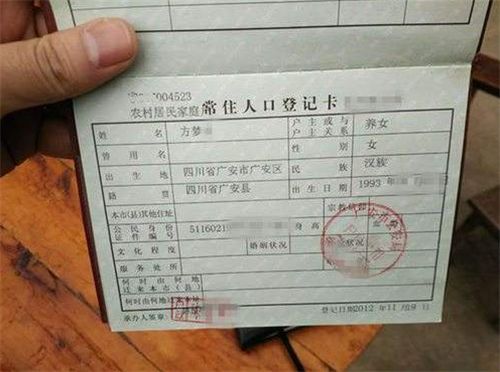 004523
农村居民家庭 常住人口登记卡
姓名 方梦 户主或与户主关系 养女
曾用名 性别 女
出生地 四川省广安市广安区 民族 汉族
籍贯 四川省广安县 出生日期 1993
本市(县)其他住址 宗教信仰
公民身份证件编号 5116021 身高
文化程度 婚姻状况
服务处所
何时由何地迁来本市(县)
何时由何地迁来本址
承办人签章: 登记日期2012 年11月9日